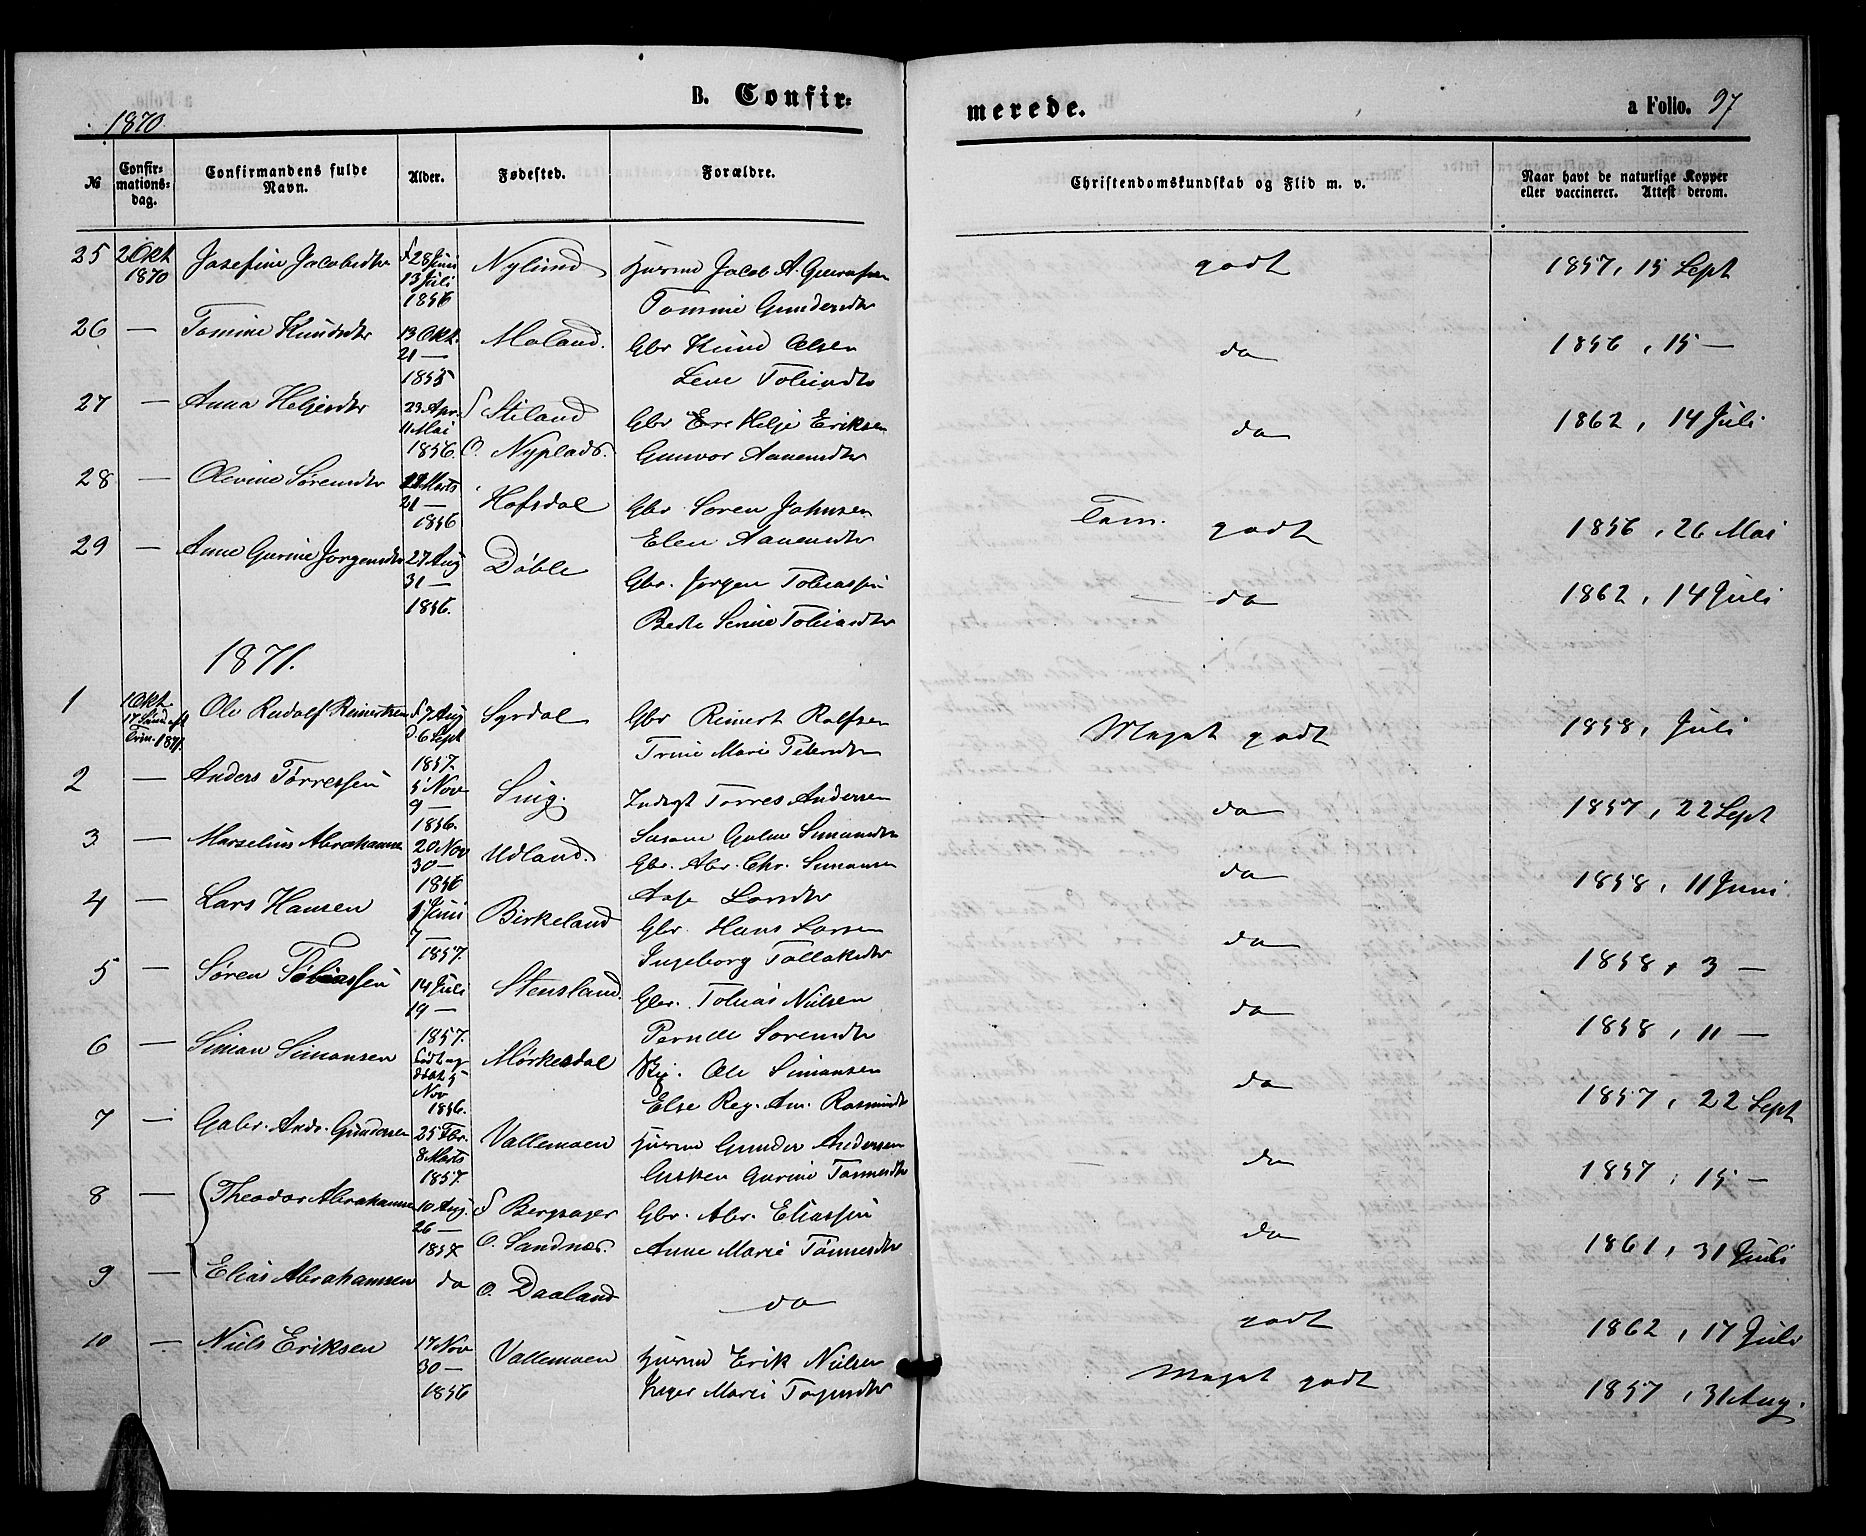 1870.
B. Confir:
merede.
a Folio. 97
№
Confirmationsdag.
Confirmandens fulde Navn.
Alder.
Fødested.
Forældre.
Christendomskundskab og Flid m. v.
Naar havt de naturlige Kopper eller vaccineret. Attest derom.
25 2 Okt 1870 Josefine Jacobsdtr f 28 Juni 13 Juli 1856 Nylund Husmd Jacob A.
Tomine Gundersdtr godt 1857, 15 Sept
26 — Tomine Knudsdtr 13 Okt. 21 — 1855 Moland. Gbr Knud Olsen
Lene Tobiasdtr do 1856, 15 —
27 — Anna Heljesdtr 23 Apr. 11 Mai 1856. f Stiland O. Nyplads. Gbr Helje Eriksen
Gunvor Aanensdtr do 1862, 14 Juli
28 — Olevine Sørensdtr Marts 21 — 1856 Hofsdal Gbr Søren Johnsen
Elen Aanensdtr Tem. godt 1856, 26 Mai
29 — Anne Gurine Jørgensdtr 27 Aug 31 — 1856. Døble Gbr. Jørgen Tobiassen
Berte Serine Tobiasdtr do 1862, 14 Juli
1871.
1 1 Okt. 17 Sønd eft Trin. 1871. Ole Rudolf Reinertsen f 7 Aug d. 6 Sept 1857. Syrdal Gbr Reinert Rolfsen
Trine Marie Petersdtr Meget godt 1858, Juli
2 — Anders Tørressen 5 Nov 9 — 1856. Sing. Inderst Tørres Andersen
Susane Simonsdtr do 1857, 22 Sept
3 — Marselius Abrahamsen 20 Nov 30 — 1856 Udland. Gbr. Abr. Chr. Simonsen
Aase Larsdtr do 1858, 11 Juni
4 — Lars Hansen 1 Juni 7 — 1857. Birkeland Gbr. Hans Larsen
Ingeborg Tollaksdtr do 1858, 3 —
5 — Søren Tobiassen 14 Juli 19 — 1857. Stensland. Gbr. Tobias Nielsen
Pernille Sørensdtr do 1858, 11 —
6 — Simon Simonsen Født og døbt 5 Nov 1856. Mørkesdal Ole Simonsen
Else Reg. Am. Rasmusdtr do 1857, 22 Sept
7 — Gabr. Andr. Gundersen 25 Fbr. 8 Marts 1857. Vallemoen Husmd Gunder Andersen
Gurine Tønnesdtr do 1857, 15 —
8 — Theodor Abrahamsen 10 Aug. 26 — 1857. f Bergsager O. Sandnes. Gbr. Abr. Eliassen
Anne Marie Tønnesdtr do 1861, 31 Juli
9 — Elias Abrahamsen do O. Daaland do godt 1862, 17 Juli
10 — Niels Eriksen 17 Nov 30 — 1856 Vallemoen Husmd Erik Nielsen
Inger Marie Meget godt 1857, 31 Aug.